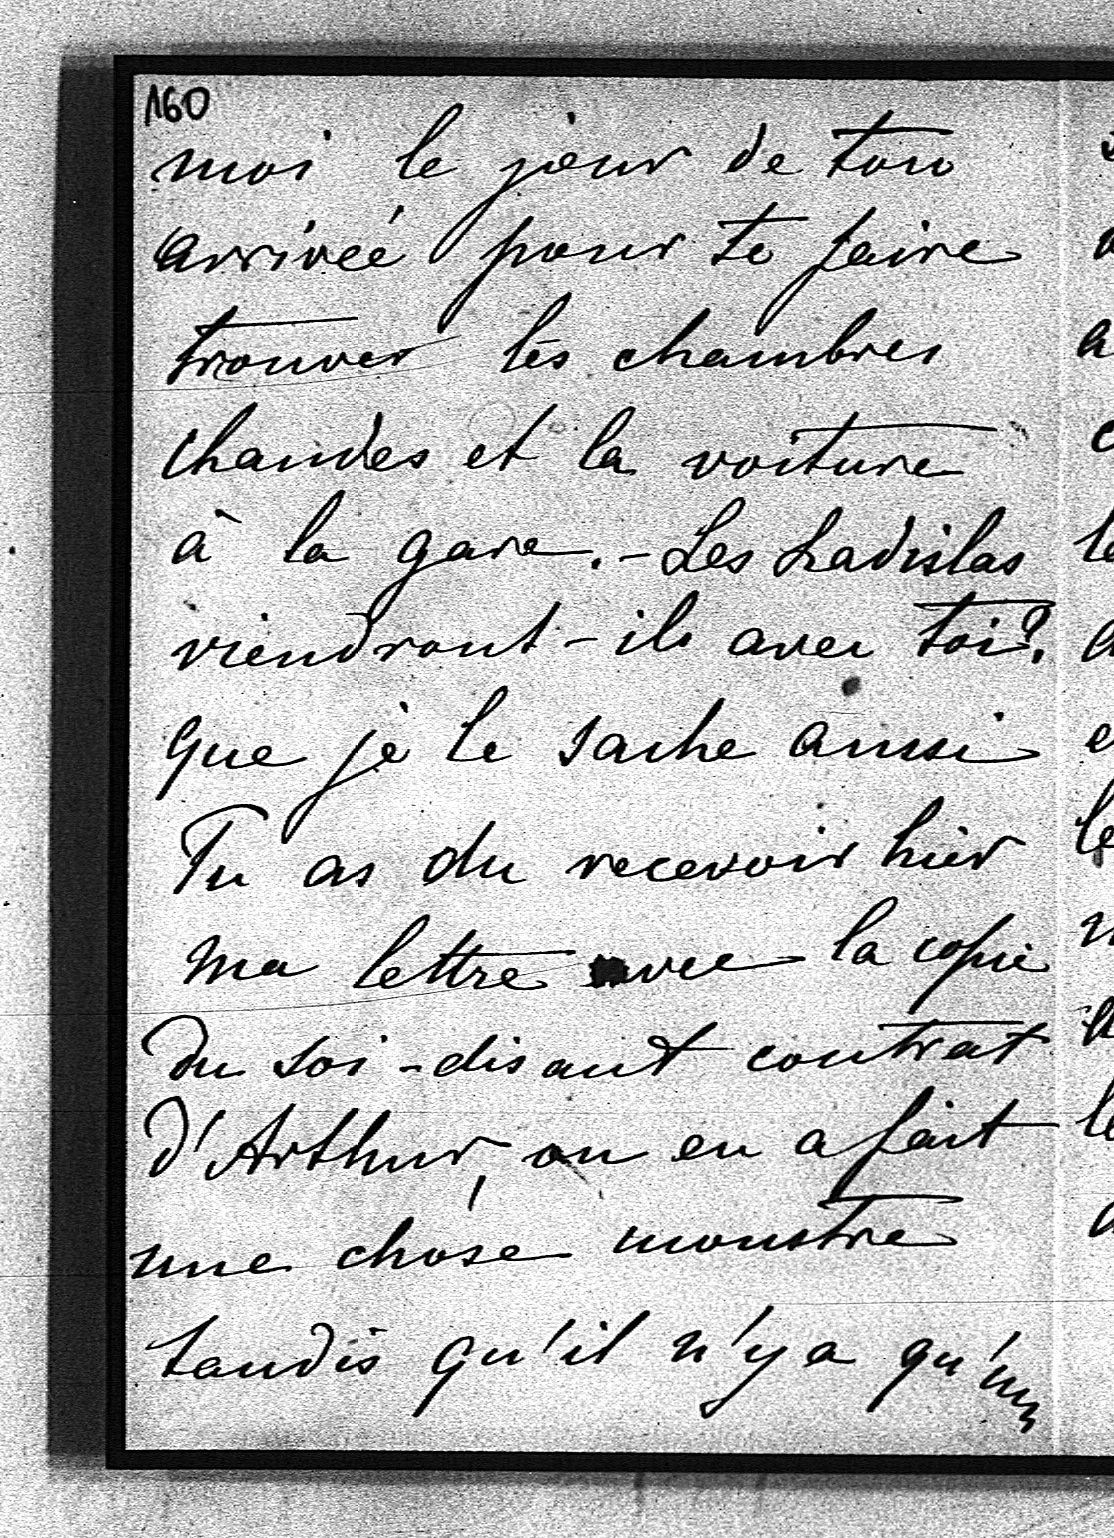 160
moi le jour de ton
arrivée pour te faire
trouver les chambres
chaudes et la voiture
à la gare. - Les Ladislas
viendront-ils avec toi?
que je le sache aussi
Tu as du recevoir hier
ma lettre avec la copie
du soi-disant contrat
d'Arthur, on en a fait
une chose monstre
tandis qu'il n'y a qu'un